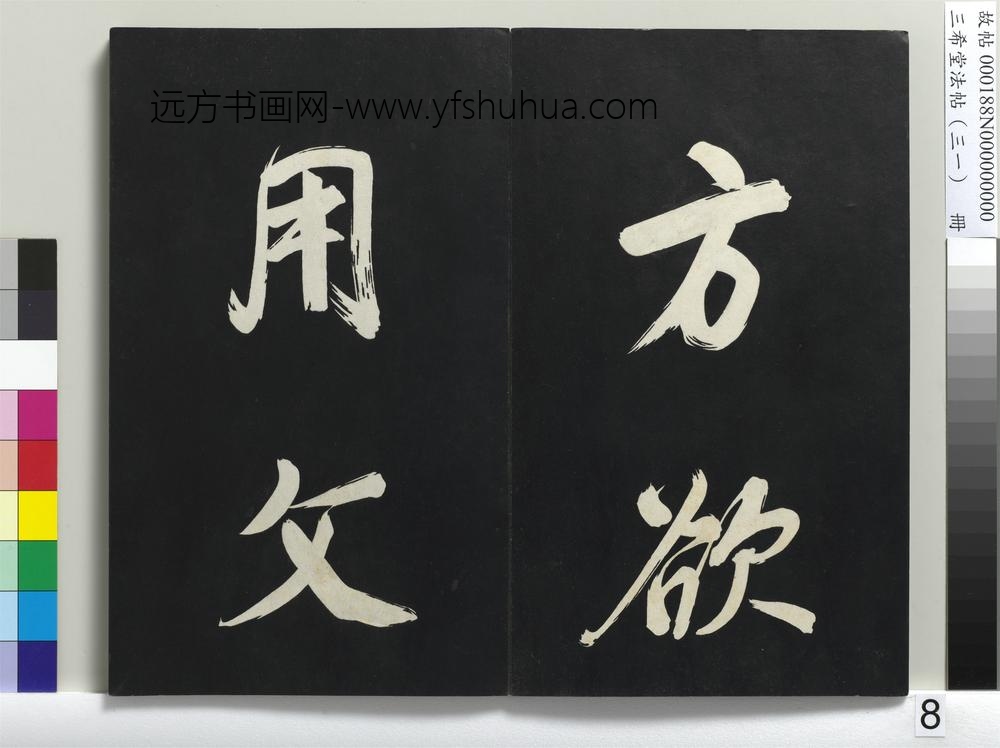 远方书画网-www.yfshuhua.com
方欲
用文
故帖 000188N000000000
三希堂法帖（三一） 冊
8